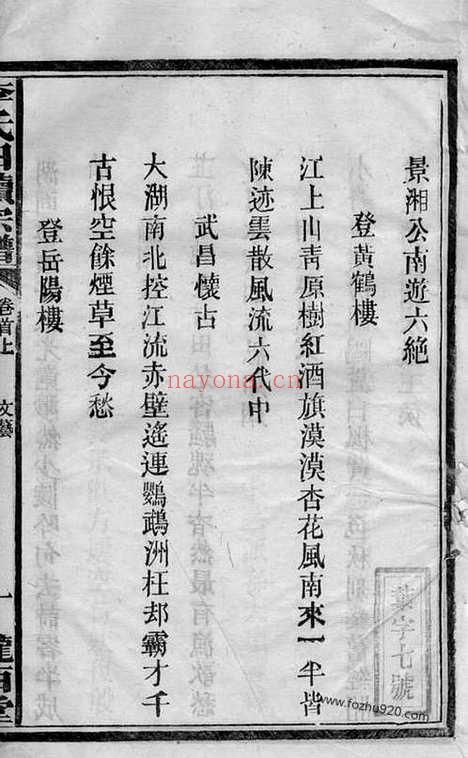 景湘公南遊六絕
登黃鶴樓
江上山靑原樹紅酒旗漠漠杏花風南來一半皆
陳迹雲散風流六代中
武昌懷古
大湖南北控江流赤壁遙連鸚鵡洲枉却霸才千
古恨空餘煙草至今愁
登岳陽樓
李氏四續宗譜
卷首上
文藝
一
隴西堂
字七號
nayona.cn
www.fozhu920.com